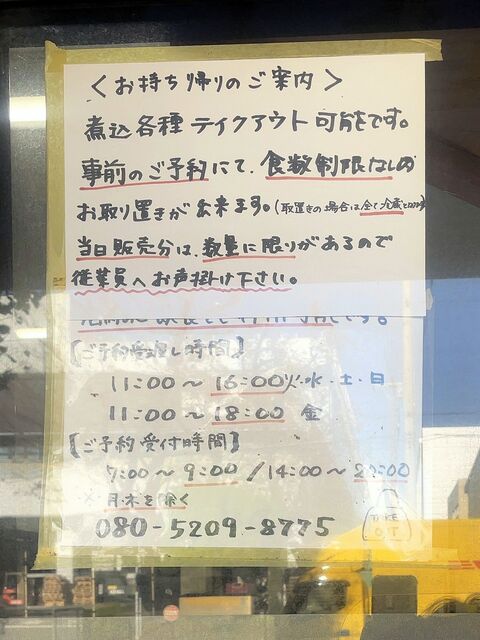 〈お持ち帰りのご案内〉
煮込各種 テイクアウト可能です。
事前のご予約にて、食数制限なしの
お取り置きが出来ます。(取置きの場合は全て冷蔵と
当日販売分は、数量に限りがあるので
従業員へお声掛け下さい。
です。
【ご予約受渡し時間】
11:00〜16:00 火・水・土・日
11:00〜18:00 金
【ご予約受付時間】
7:00〜9:00/14:00〜20:00
※月・木を除く
080-5209-8775